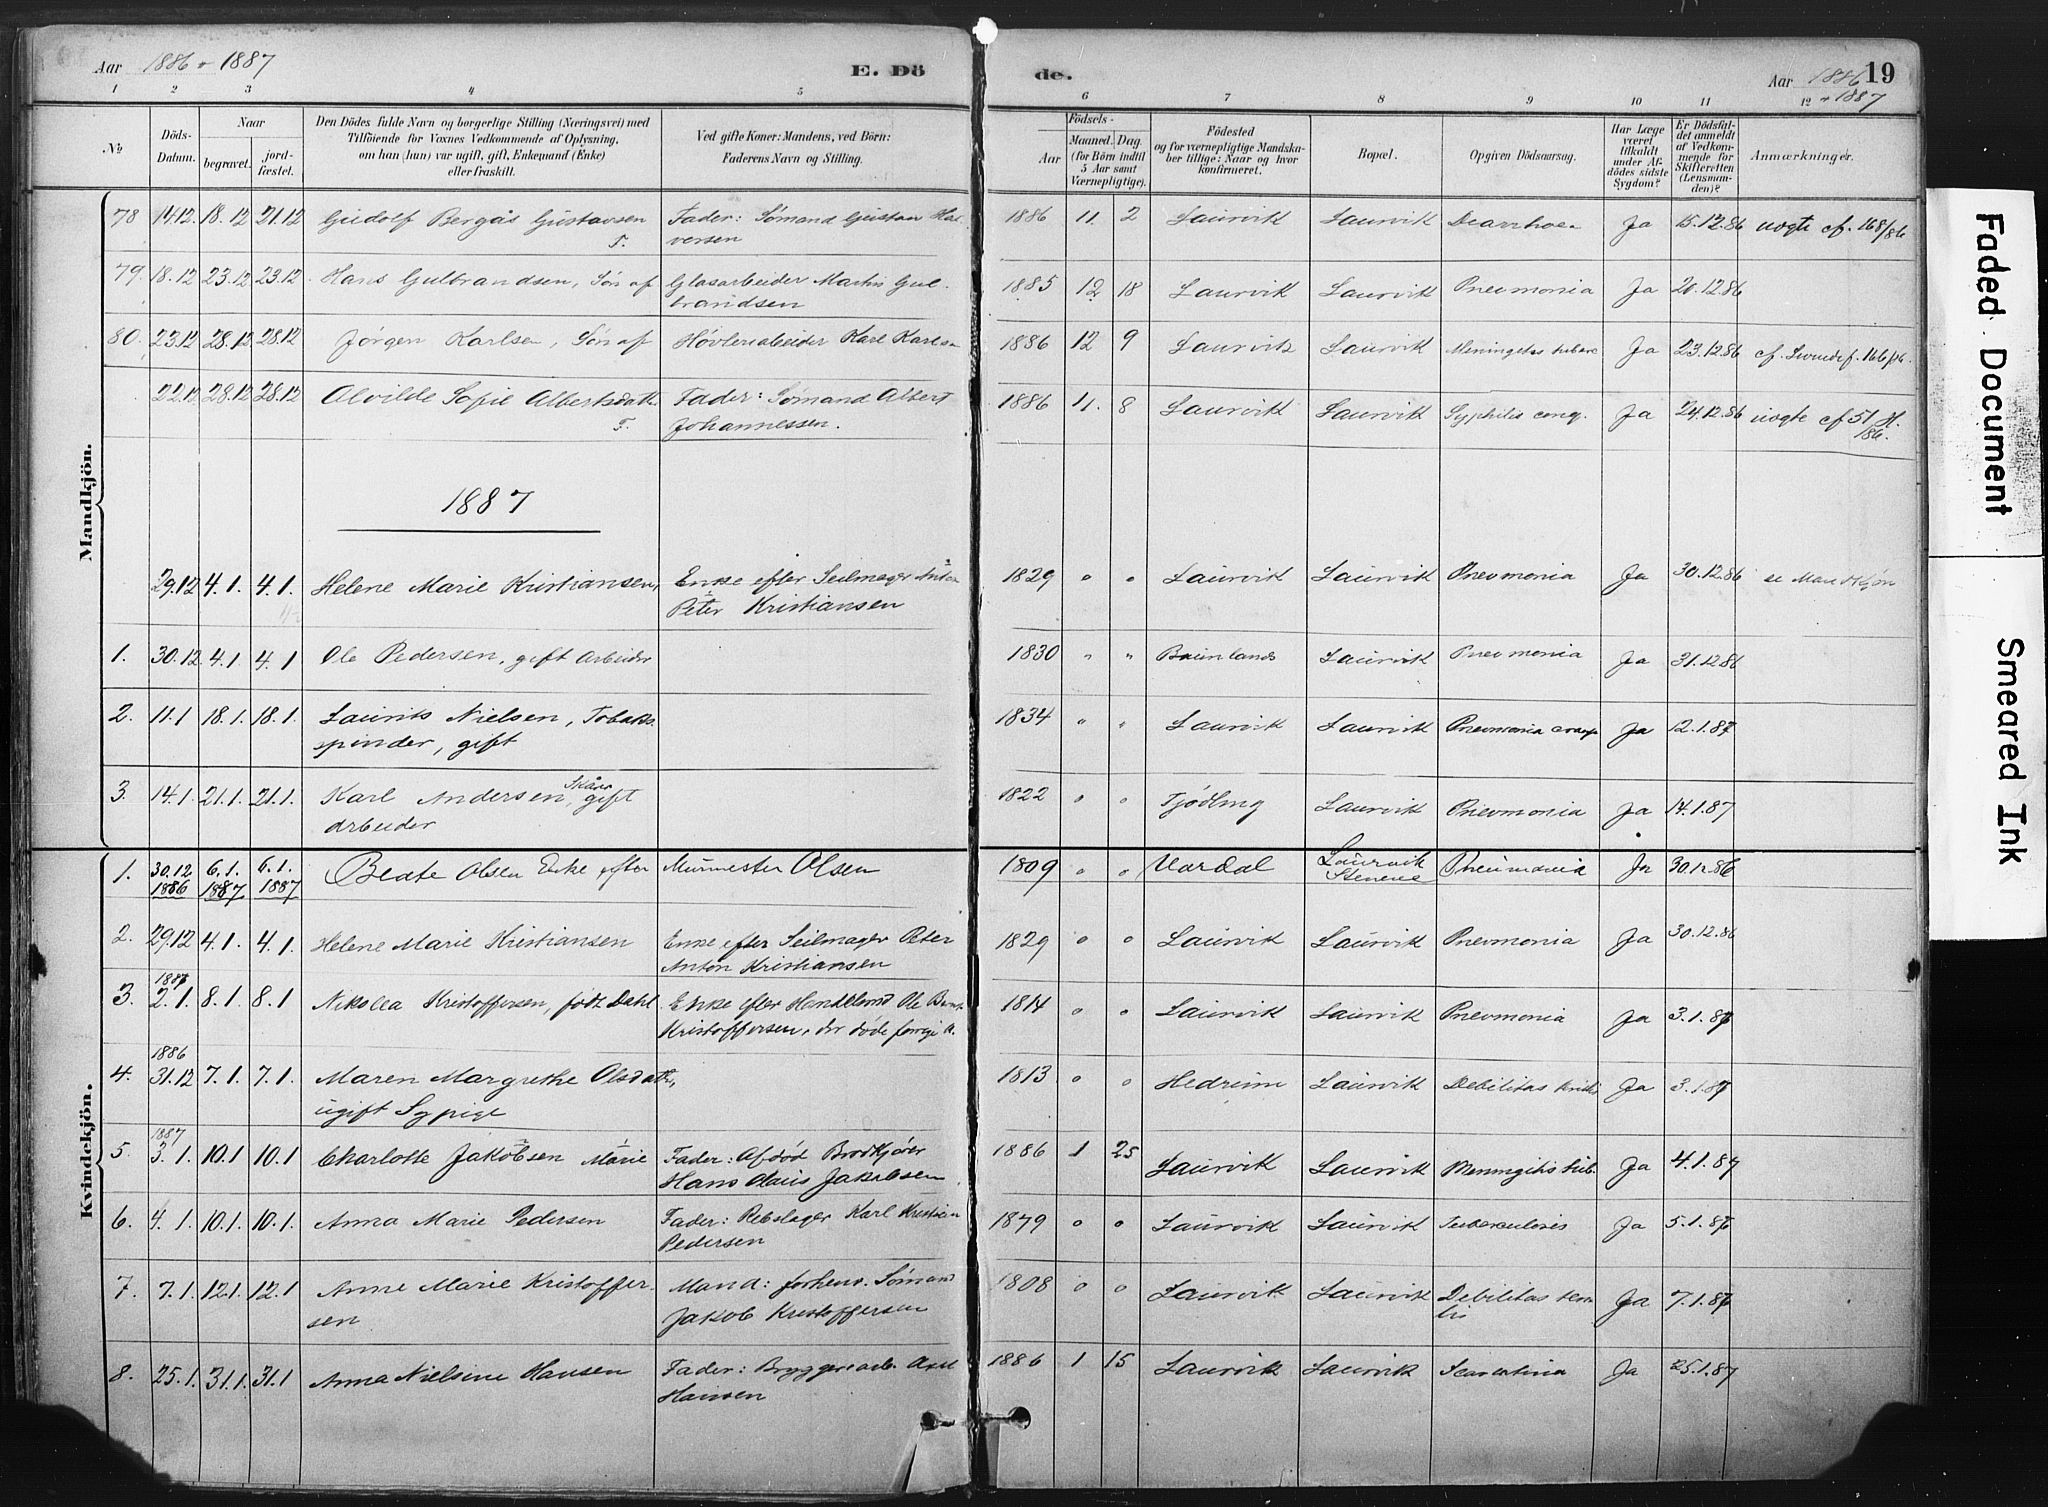 Aar 1886 + 1887
E. Dö
de.
Aar 1886 + 1887
19
1 2 3 4 5 6 7 8 9 10 11 12
No
Döds-Datum.
Naar
begravet.
jord-fæstet.
Den Dödes fulde Navn og borgerlige Stilling (Næringsvei) med
Tilföiende for Voxnes Vedkommende af Oplysning,
om han (hun) var ugift, gift, Enkemand (Enke)
eller fraskilt.
Ved gifte Koner: Mandens, ved Börn:
Faderens Navn og Stilling.
Födsels-
Aar
Maaned. Dag.
(for Börn indtil
5 Aar samt
Værnepligtige).
Födested
og for værnepligtige Mandska-
ber tillige: Naar og hvor
konfirmeret.
Bopæl.
Opgiven Dödsaarsag.
Har Læge
været
tilkaldt
under Af-
dödes sidste
Sygdom?
Er Dödsfal-
det anmeldt
af Vedkom-
mende for
Skifteretten
(Lensman-
den)?
Anmærkninger.
Mandkjön.
78 14.12. 18.12 21.12 Gudolf Bergås Gustavsen Fader: Sømand Gustav Hal- 1886 11. 2 Laurvik Laurvik Diarrhoe Ja 15.12.86 uægte cf. 168/86
T. versen
79. 18.12 23.12 23.12 Hans Gulbrandsen, Søn af Glasarbeider Martin Gul- 1885 12 18 Laurvik Laurvik Pnevmonia Ja 20.12.86
brandsen
80. 23.12 28.12 28.12 Jørgen Karlsen, Søn af Høvleriarbeider Karl Karlsen 1886 12 9 Laurvik Laurvik Meningitis tuberc Ja 23.12.86 cf. 166/86.
22.12 28.12 28.12 Alvilde Sofie Albertsdatt. Fader: Sømand Albert 1886 11. 8 Laurvik Laurvik Syphilis cong. Ja 24.12.86 uægte cf 51/
T. Johannessen. 86.
1887
29.12 4.1. 4.1. Helene Marie Kristiansen, Enke efter Seilmager Anton 1829 " " Laurvik Laurvik Pnevmonia Ja 30.12.86 se Mandkjøn
Peter Kristiansen
1. 30.12 4.1. 4.1 Ole Pedersen, gift Arbeider 1830 " " Brunlanes Laurvik Pnevmonia Ja 31.12.86
2. 11.1 18.1. 18.1. Laurits Nielsen, Tobaks- 1834 " " Laurvik Laurvik Pnevmonia croup Ja 12.1.87
spinder, gift
3. 14.1. 21.1. 21.1. Karl Andersen, Skåra gift 1822 " " Tjødling Laurvik Pnevmonia Ja 14.1.87
Arbeider
Kvindekjön.
1. 30.12 6.1. 6.1. Beate Olsen Enke efter Murmester Olsen 1809 " " Vardal Laurvik Pneumonia Ja 30.12.86
1886 1887 1887 Stenene
2. 29.12 4.1. 4.1. Helene Marie Kristiansen Enke efter Seilmager Peter 1829 " " Laurvik Laurvik Pnevmonia Ja 30.12.86
Anton Kristiansen
1887
3. 2.1. 8.1. 8.1 Nikolea Kristoffersen, født Dahl Enke efter Handelsmd Ole 1814 " " Laurvik Laurvik Pnevmonia Ja 3.1.87
Kristoffersen, der døde forrige A.
1886
4. 31.12 7.1. 7.1. Maren Margrethe Olsdatt., 1813 " " Hedrum Laurvik Debilitas Ja 3.1.87
ugift Sypige
1887
5. 3.1. 10.1 10.1 Charlotte Jakobsen Marie Fader: Afdød Brødkjører 1886 1 25 Laurvik Laurvik Meningitis tub. Ja 4.1.87
Hans Olaus Jakobsen
6. 4.1. 10.1. 10.1. Anna Marie Pedersen Fader: Rebslager Karl Kristian 1879 " " Laurvik Laurvik Tuberculosis Ja 5.1.87
Pedersen
7. 7.1. 12.1. 12.1 Anne Marie Kristoffer- Mand: forhenv. Sømand 1808 " " Laurvik Laurvik Debilitas seni- Ja 7.1.87
sen Jakob Kristoffersen lis
8. 25.1. 31.1. 31.1 Anna Nielsine Hansen Fader: Bryggeriarb. Axel 1886 1 15 Laurvik Laurvik Scarlatina Ja 25.1.87
Hansen
Faded Document
Smeared Ink